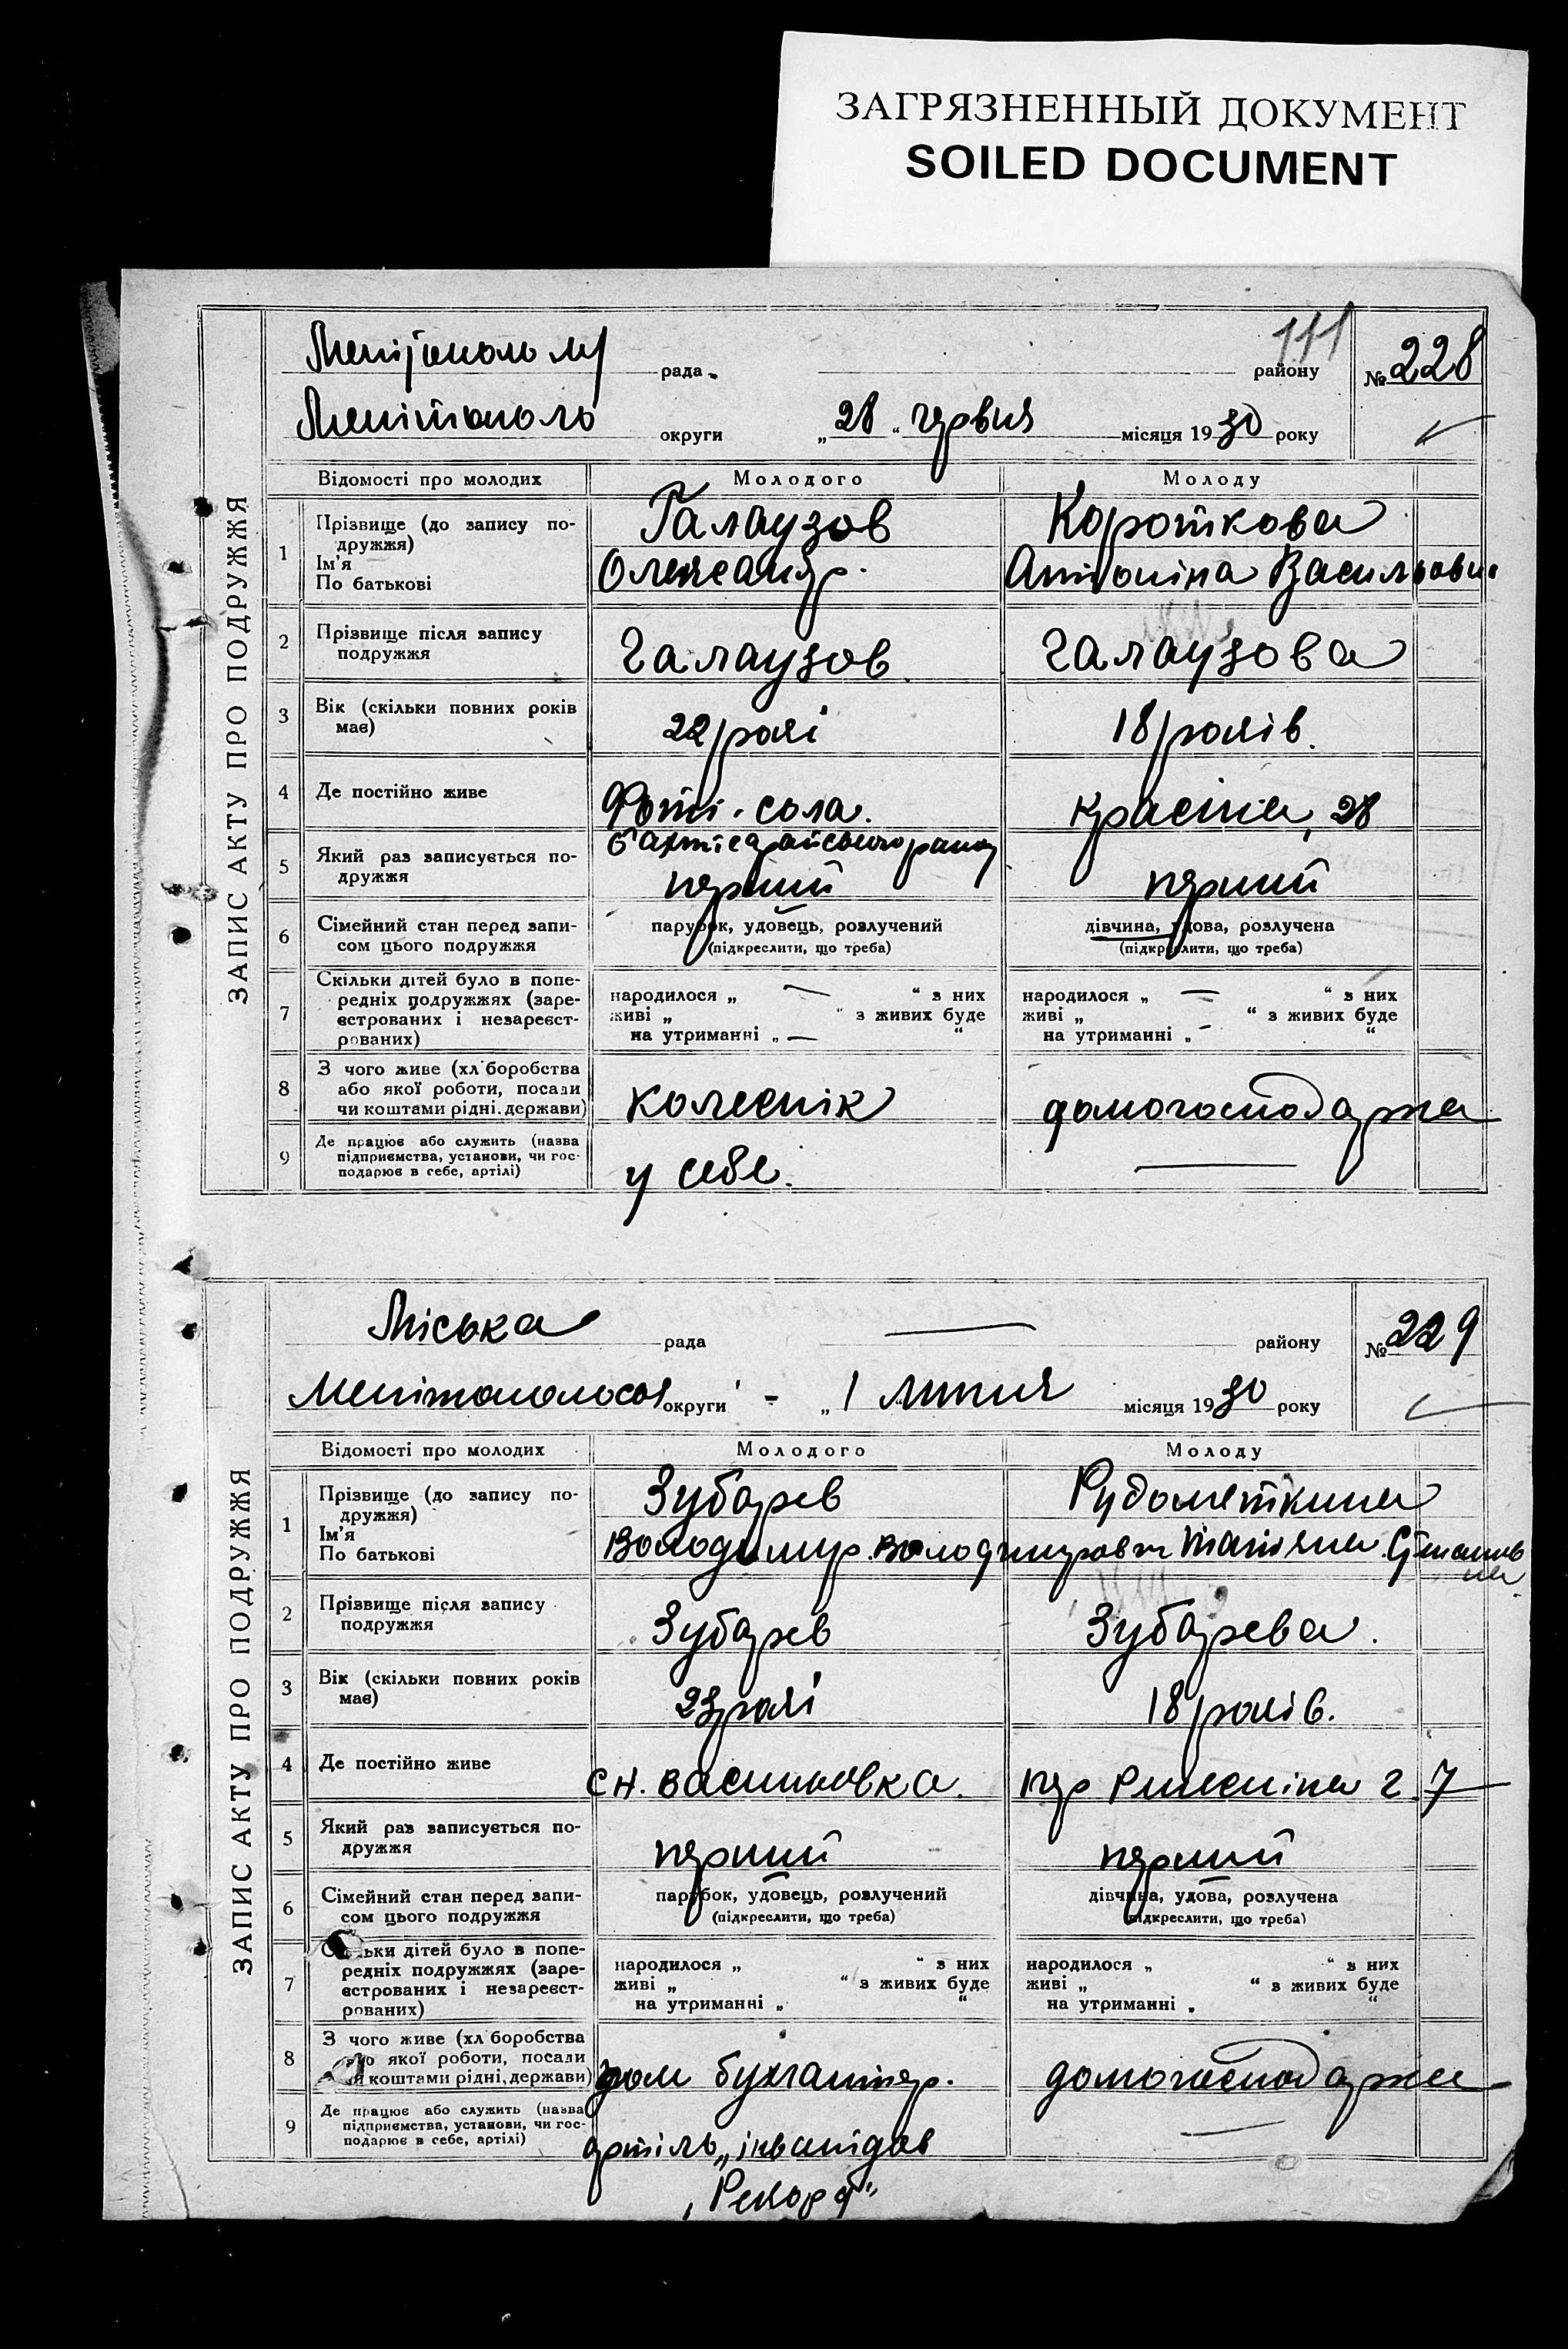 ЗАГРЯЗНЕННЫЙ ДОКУМЕНТ
SOILED DOCUMENT
111
рада району № 228
Мелітополь округи „28“ червня місяця 1930 року
ЗАПИС АКТУ ПРО ПОДРУЖЖЯ
Відомості про молодих Молодого Молоду
1 Прізвище (до запису по-
дружжя)
Ім'я
По батькові
Галаузов Короткова
Олександр. Антоніна Васильовн.
2 Прізвище після запису
подружжя
Галаузов Галаузова
3 Вік (скільки повних років
має)
22 рокі 18 років.
4 Де постійно живе
Фоті-сола. Красіна, 28
Бахтісарайського району
5 Який раз записується по-
дружжя
перший перший
6 Сімейний стан перед запи-
сом цього подружжя
парубок, удовець, розлучений дівчина, удова, розлучена
(підкреслити, що треба) (підкреслити, що треба)
7 Скільки дітей було в попе-
редніх подружжях (заре-
єстрованих і незареєст-
рованих)
народилося „ — “ з них народилося „ — “ з них
живі „ “ з живих буде живі „ “ з живих буде
на утриманні „ — “ на утриманні „ — “
8 З чого живе (хліборобства
або якої роботи, посади
чи коштами рідні. держави)
колеснік домогосподарка
9 Де працює або служить (назва
підприємства, установи, чи гос-
подарює в себе, артілі)
у себе. —
Міська рада — району № 229
округи - „1 липня місяця 1930 року
ЗАПИС АКТУ ПРО ПОДРУЖЖЯ
Відомості про молодих Молодого Молоду
1 Прізвище (до запису по-
дружжя)
Ім'я
По батькові
Зубарев Рудометкина
Володимир. Володимирович Татяна Степанов
на
2 Прізвище після запису
подружжя
Зубарев Зубарева.
3 Вік (скільки повних років
має)
23 рокі 18 років.
4 Де постійно живе
Васильовка. 7
5 Який раз записується по-
дружжя
перший перший
6 Сімейний стан перед запи-
сом цього подружжя
парубок, удовець, розлучений дівчина, удова, розлучена
(підкреслити, що треба) (підкреслити, що треба)
7 Скільки дітей було в попе-
редніх подружжях (заре-
єстрованих і незареєст-
рованих)
народилося „ “ з них народилося „ “ з них
живі „ “ з живих буде живі „ “ з живих буде
на утриманні „ “ на утриманні „ “
8 З чого живе (хліборобства
або якої роботи, посади
чи коштами рідні, держави)
пом бухгалтер. домогосподарка
9 Де працює або служить (назва
підприємства, установи, чи гос-
подарює в себе, артілі)
артіль „інвалідов —
„Рекорд“